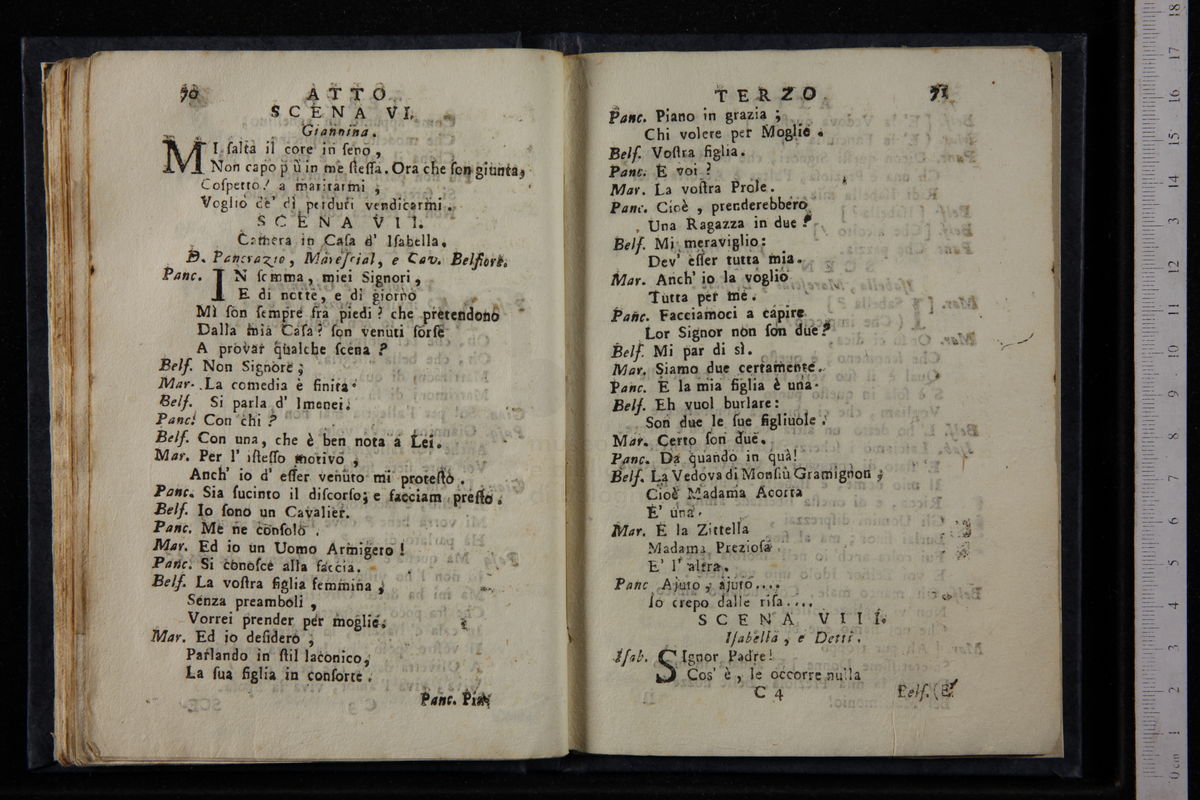 70 ATTO
SCENA VI.
Giannina.
MI ſalta il core in ſeno,
Non capo p ù in me ſteſſa. Ora che ſon giunta,
Coſpetto! a maritarmi,
Voglio de' dì perduti vendicarmi.
SCENA VII.
Camera in Caſa d' Iſabella.
D. Pancrazio, Mareſcial, e Cav. Belfiore.
Panc. IN ſomma, miei Signori,
E di notte, e di giorno
Mì ſon ſempre fra piedi? che pretendono
Dalla mia Caſa? ſon venuti forſe
A provar qualche ſcena?
Belf. Non Signore;
Mar. La comedia è finita.
Belf. Si parla d' Imenei.
Panc. Con chi?
Belf. Con una, che è ben nota a Lei.
Mar. Per l' iſteſſo motivo,
Anch' io d' eſſer venuto mi proteſto.
Panc. Sia ſucinto il diſcorſo; e facciam preſto.
Belf. Io ſono un Cavalier.
Panc. Me ne conſolo.
Mar. Ed io un Uomo Armigero!
Panc. Si conoſce alla faccia.
Belf. La voſtra figlia femmina,
Senza preamboli,
Vorrei prender per moglie.
Mar. Ed io deſidero,
Parlando in ſtil laconico,
La ſua figlia in conſorte.
Panc. Pia-
TERZO 71
Panc. Piano in grazia;
Chi volete per Moglie.
Belf. Voſtra figlia.
Panc. E voi?
Mar. La voſtra Prole.
Panc. Cioè, prenderebbero
Una Ragazza in due?
Belf. Mi meraviglio:
Dev' eſſer tutta mia.
Mar. Anch' io la voglio
Tutta per me.
Panc. Facciamoci a capire
Lor Signor non ſon due?
Belf. Mi par di sì.
Mar. Siamo due certamente.
Panc. E la mia figlia è una.
Belf. Eh vuol burlare:
Son due le ſue figliuole.
Mar. Certo ſon due.
Panc. Da quando in quà!
Belf. La Vedova di Monſiù Gramignon,
Cioè Madama Acorta
E' una.
Mar. E la Zittella
Madama Prezioſa
E' l' altra.
Panc Ajuto, ajuto....
Io crepo dalle riſa....
SCENA VIII.
Iſabella, e Detti.
Iſab. SIgnor Padre!
Cos' è, le occorre nulla
C 4 Belf. (E'